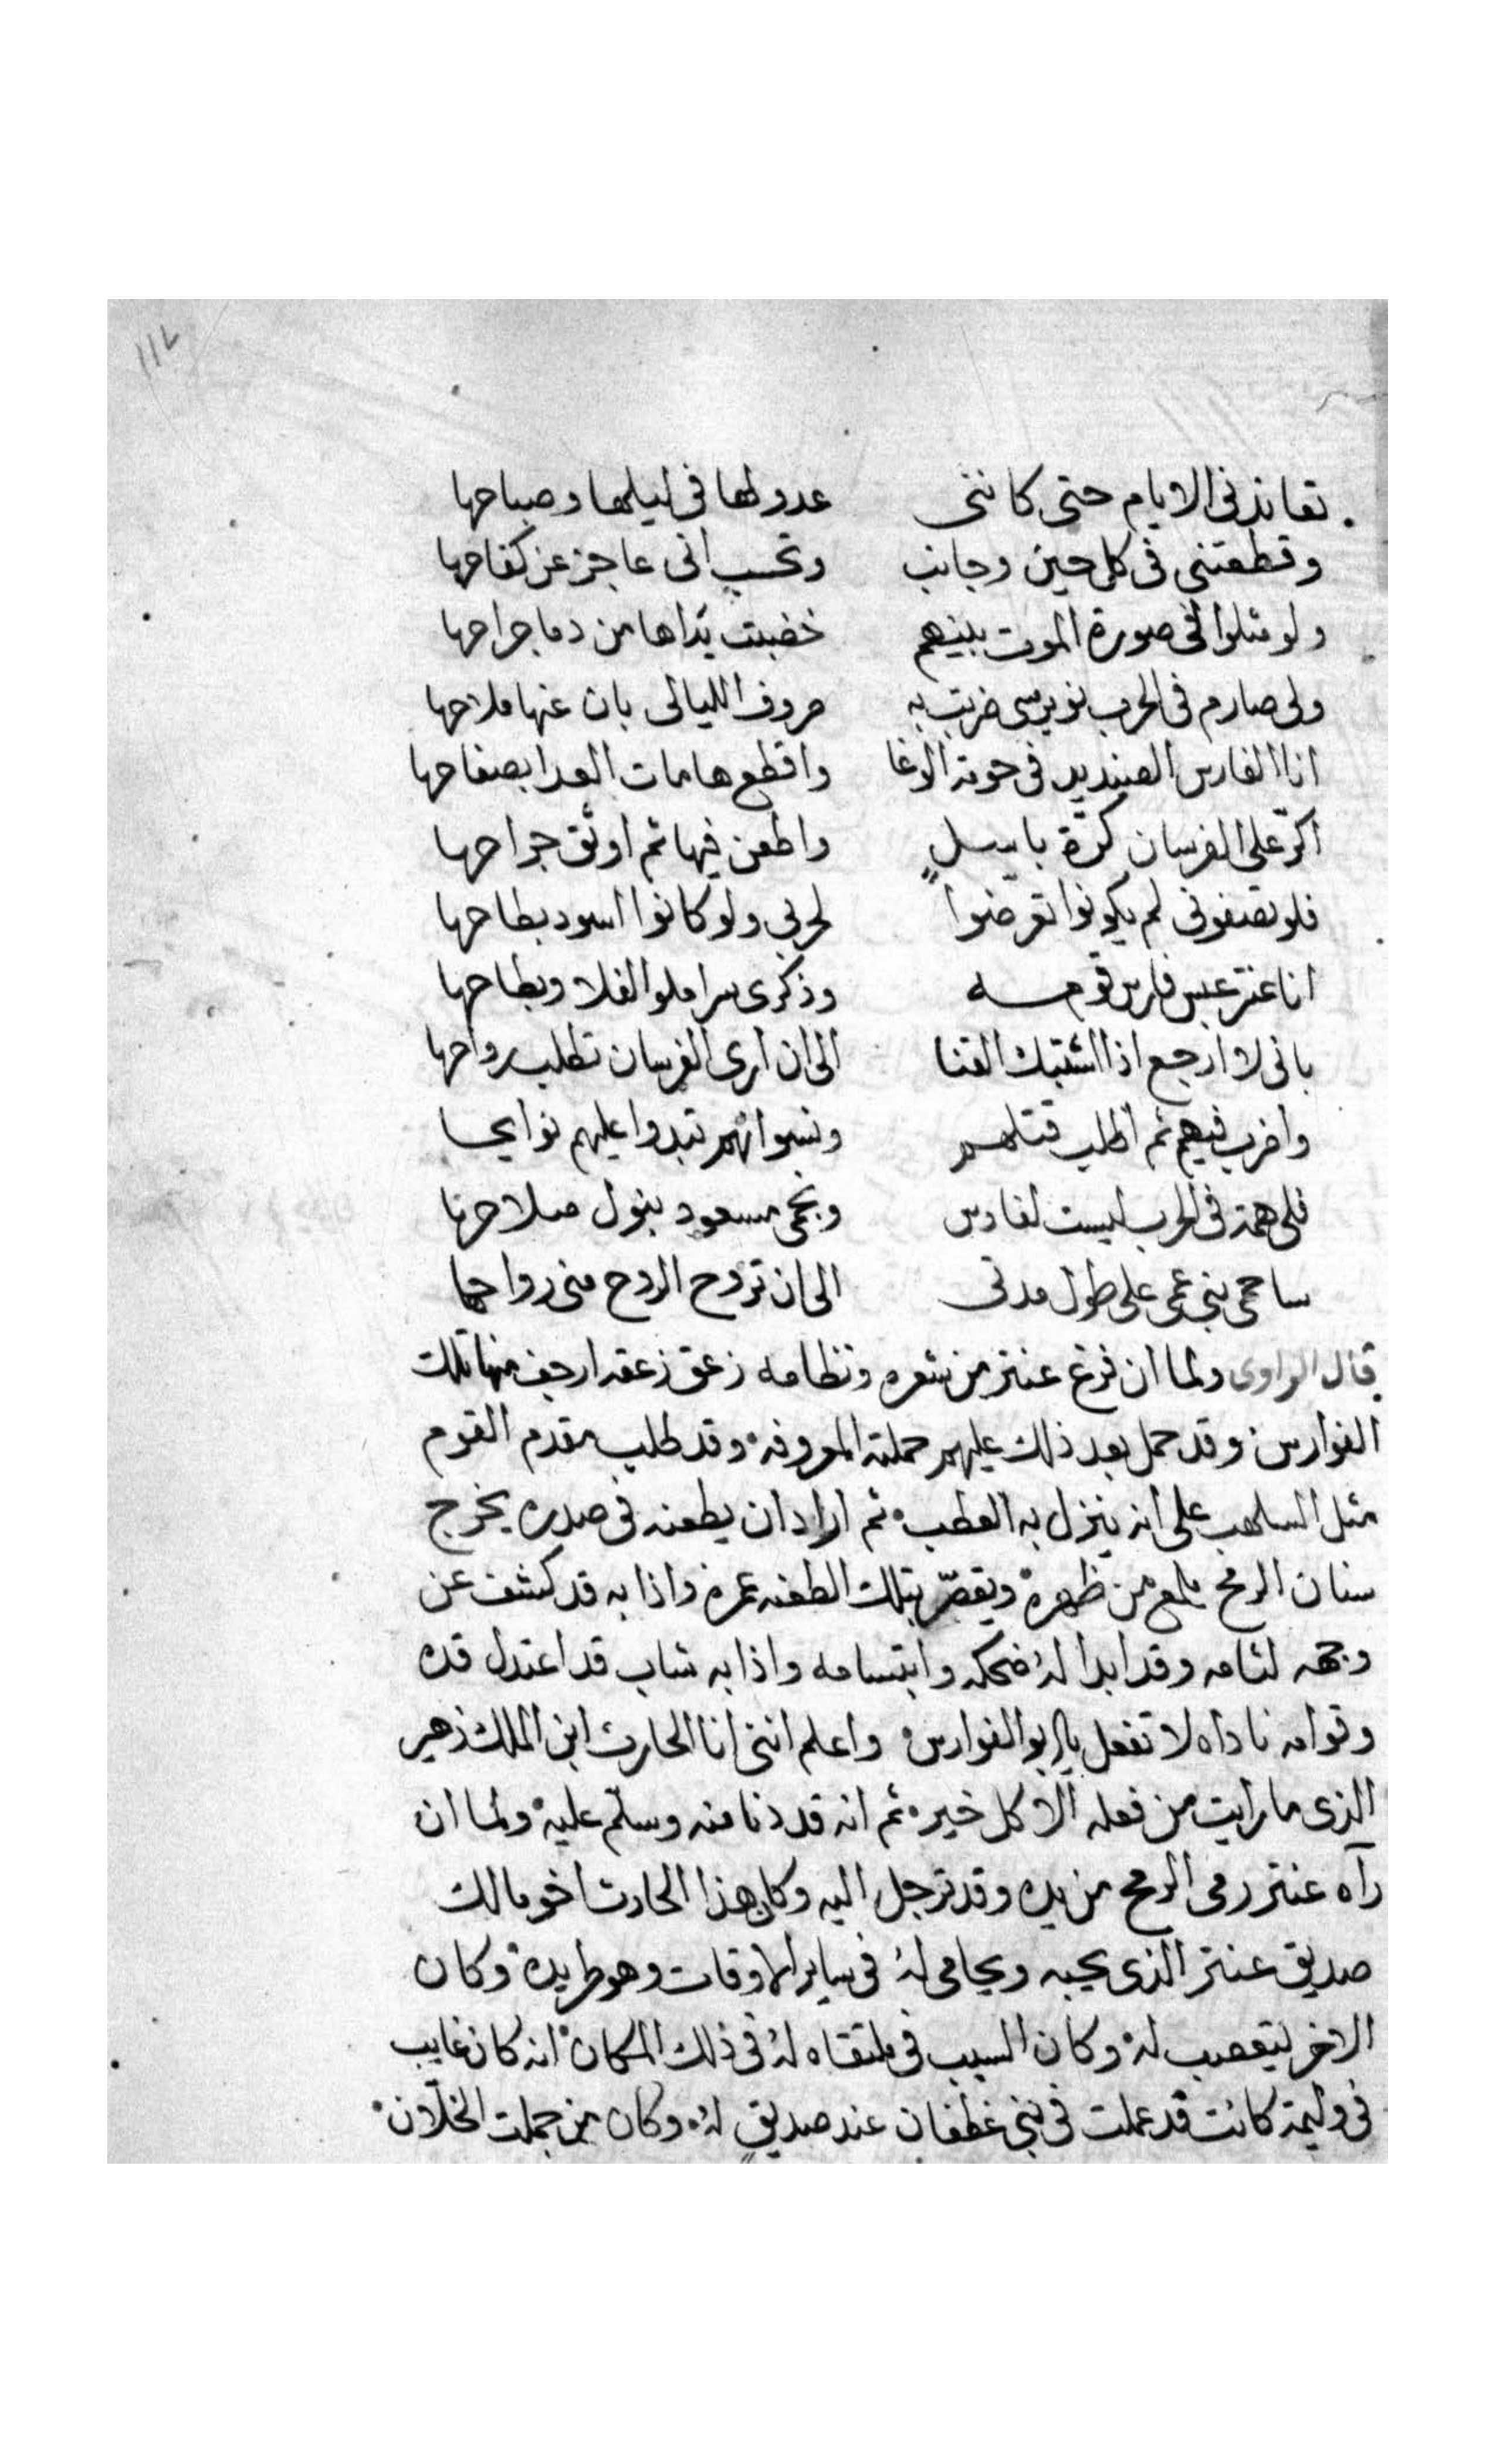 ١١٧
تعاندنى الايام حتى كاننى عدو لها فى ليلها وصباحها
وقطعتنى فى كل حين وجانب وتحسب انى عاجز عن كفاحها
ولو مثلوا لى صورة الموت بينهم خضبت يداها من دما جراحها
ولى صارم فى الحرب نوير سى ضربت به صروف الليالى بان عنها ملاحها
انا الفارس الصنديد فى حومة الوغا واقطع هامات العدا بصفاحها
اكرّ على الفرسان كرّة باسلٍ واطعن فيها ثم اوثق جراحها
فلو تصفونى لم يكونوا تعرضوا لحربى ولو كانوا اسود بطاحها
انا عنتر عبس فارس قومه وذكرى سرا ملو الفلا وبطاحها
بانى لا ارجع اذا اشتبك القنا الى ان ارى الفرسان تطلب رواحها
واضرب فيهم ثم اطلب قتلهم ونسوانهم تبدوا عليهم نوايحا
فلى همة فى الحرب ليست لفارس ونجمى مسعود بنول صلاحها
ساحمى بنى عمى على طول مدتى الى ان تروح الروح منى رواحها
قال الراوى ولما ان فرغ عنتر من شعره ونظامه زعق زعقه ارجف منها تلك
الفوارس وقد حمل بعد ذلك عليهم حملته المعروفه وقد طلب مقدم القوم
مثل السلهب على انه ينزل به العطب ثم اراد ان يطعنه فى صدره يخرج
سنان الرمح يلمع من ظهره ويقصّر بتلك الطعنه عمره واذا به قد كشف عن
وجهه لثامه وقد ابدا له ضحكه وابتسامه واذا به شاب قد اعتدل قده
وقوامه ناداه لا تفعل يا ابو الفوارس واعلم اننى انا الحارث ابن الملك زهير
الذى ما رايت من فعله الا كل خير ثم انه قد دنا منه وسلّم عليه ولما ان
رآه عنتر رمى الرمح من يده وقد ترجل اليه وكان هذا الحارث اخو مالك
صديق عنتر الذى يحبه ويحامى له فى ساير الاوقات وهو طريده وكان
الاخر ليتعصب له وكان السبب فى ملتقاه له فى ذلك المكان انه كان غايب
فى وليمة كانت قد عملت فى بنى غطفان عند صديقٍ له وكان من جملت الخلّان